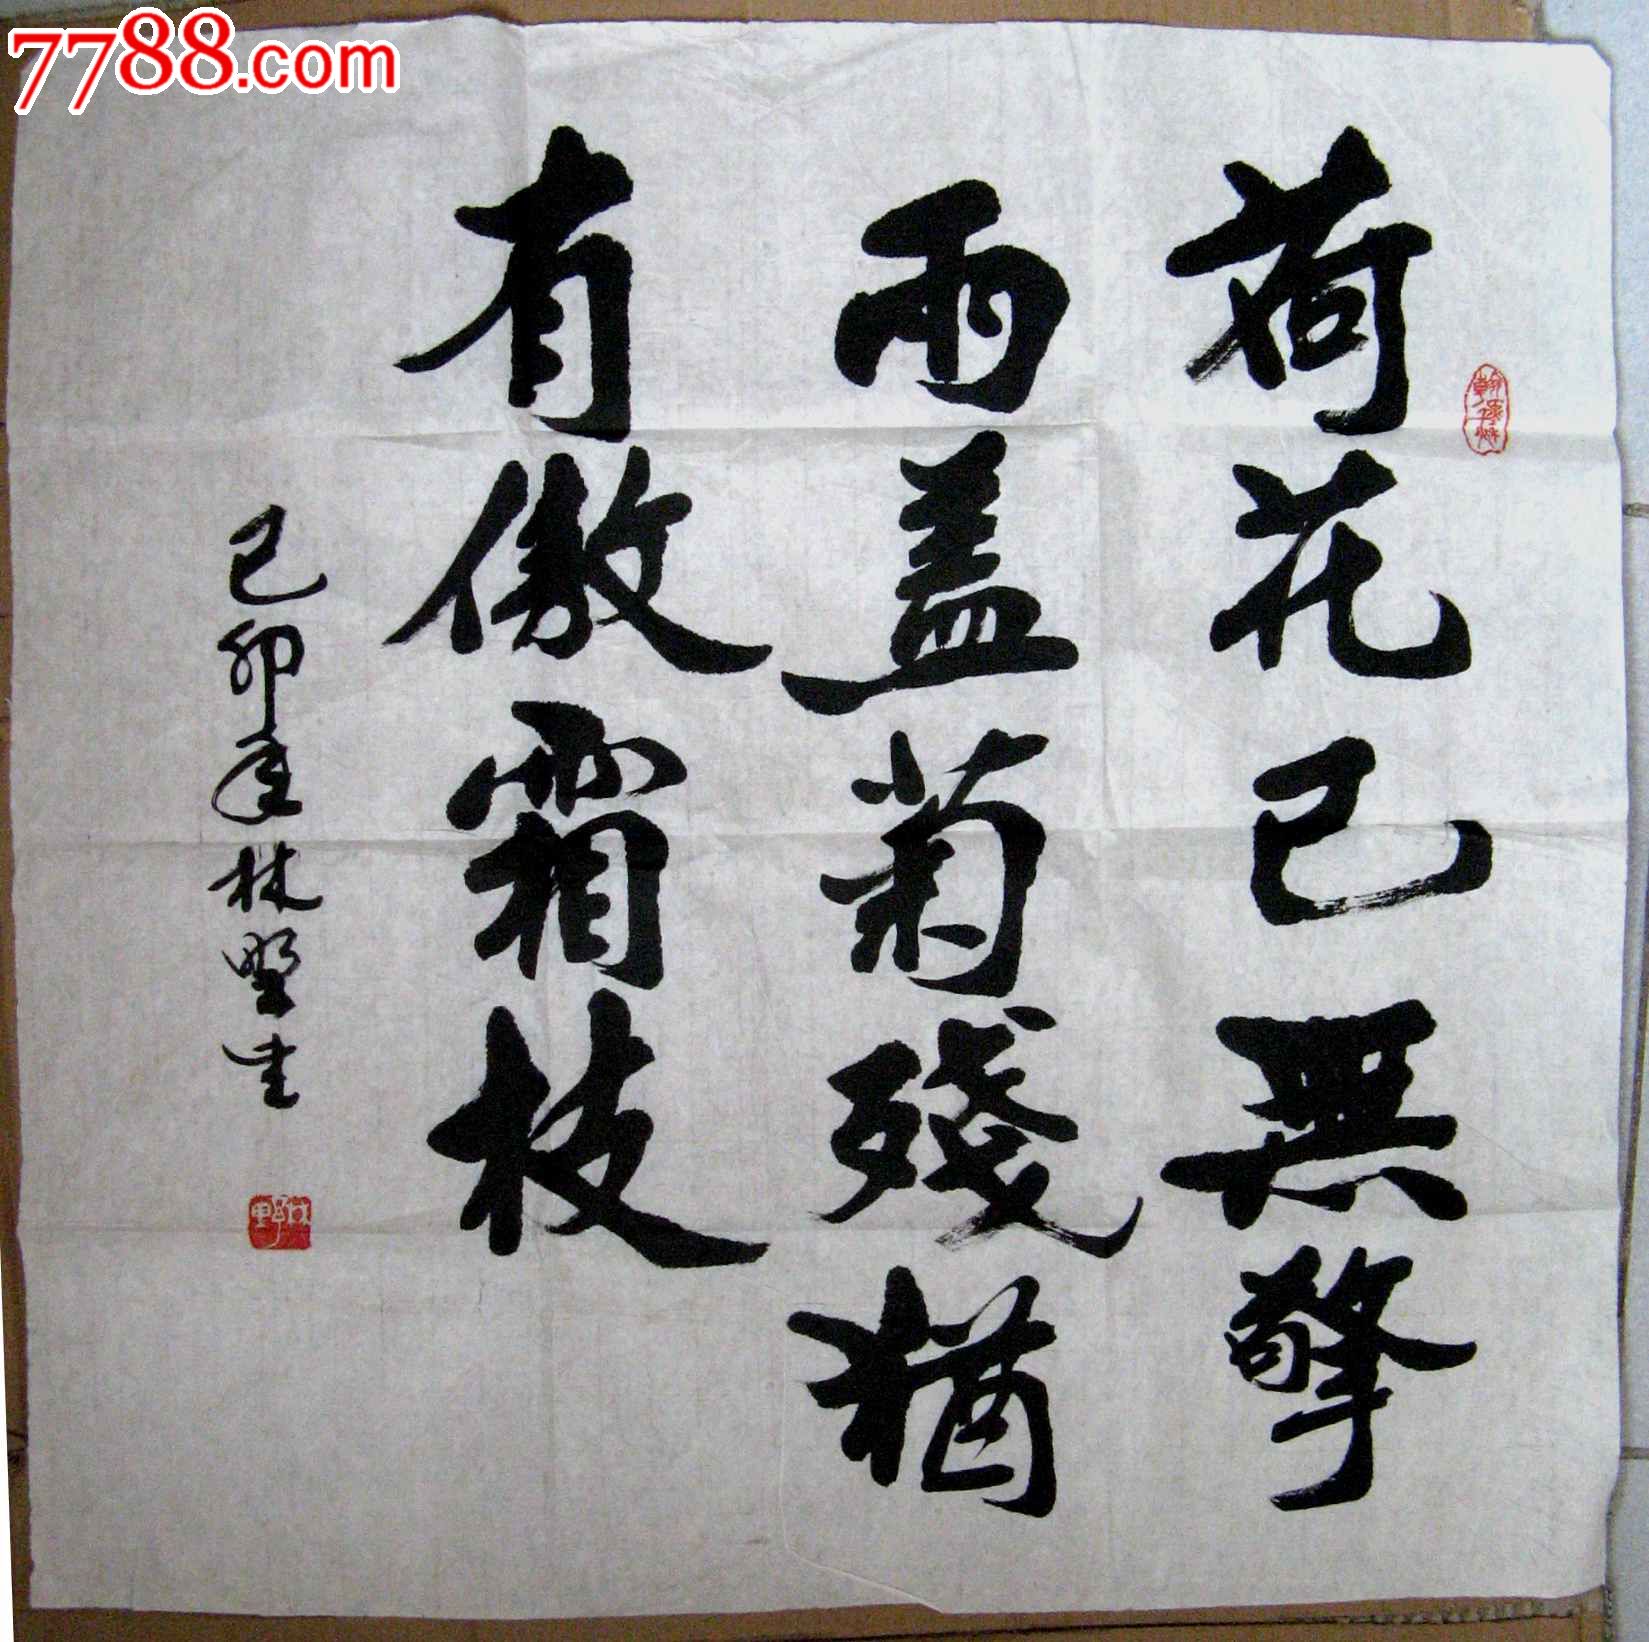 7788.com
荷花已無擎
雨蓋菊殘猶
有傲霜枝
己卯年林野书